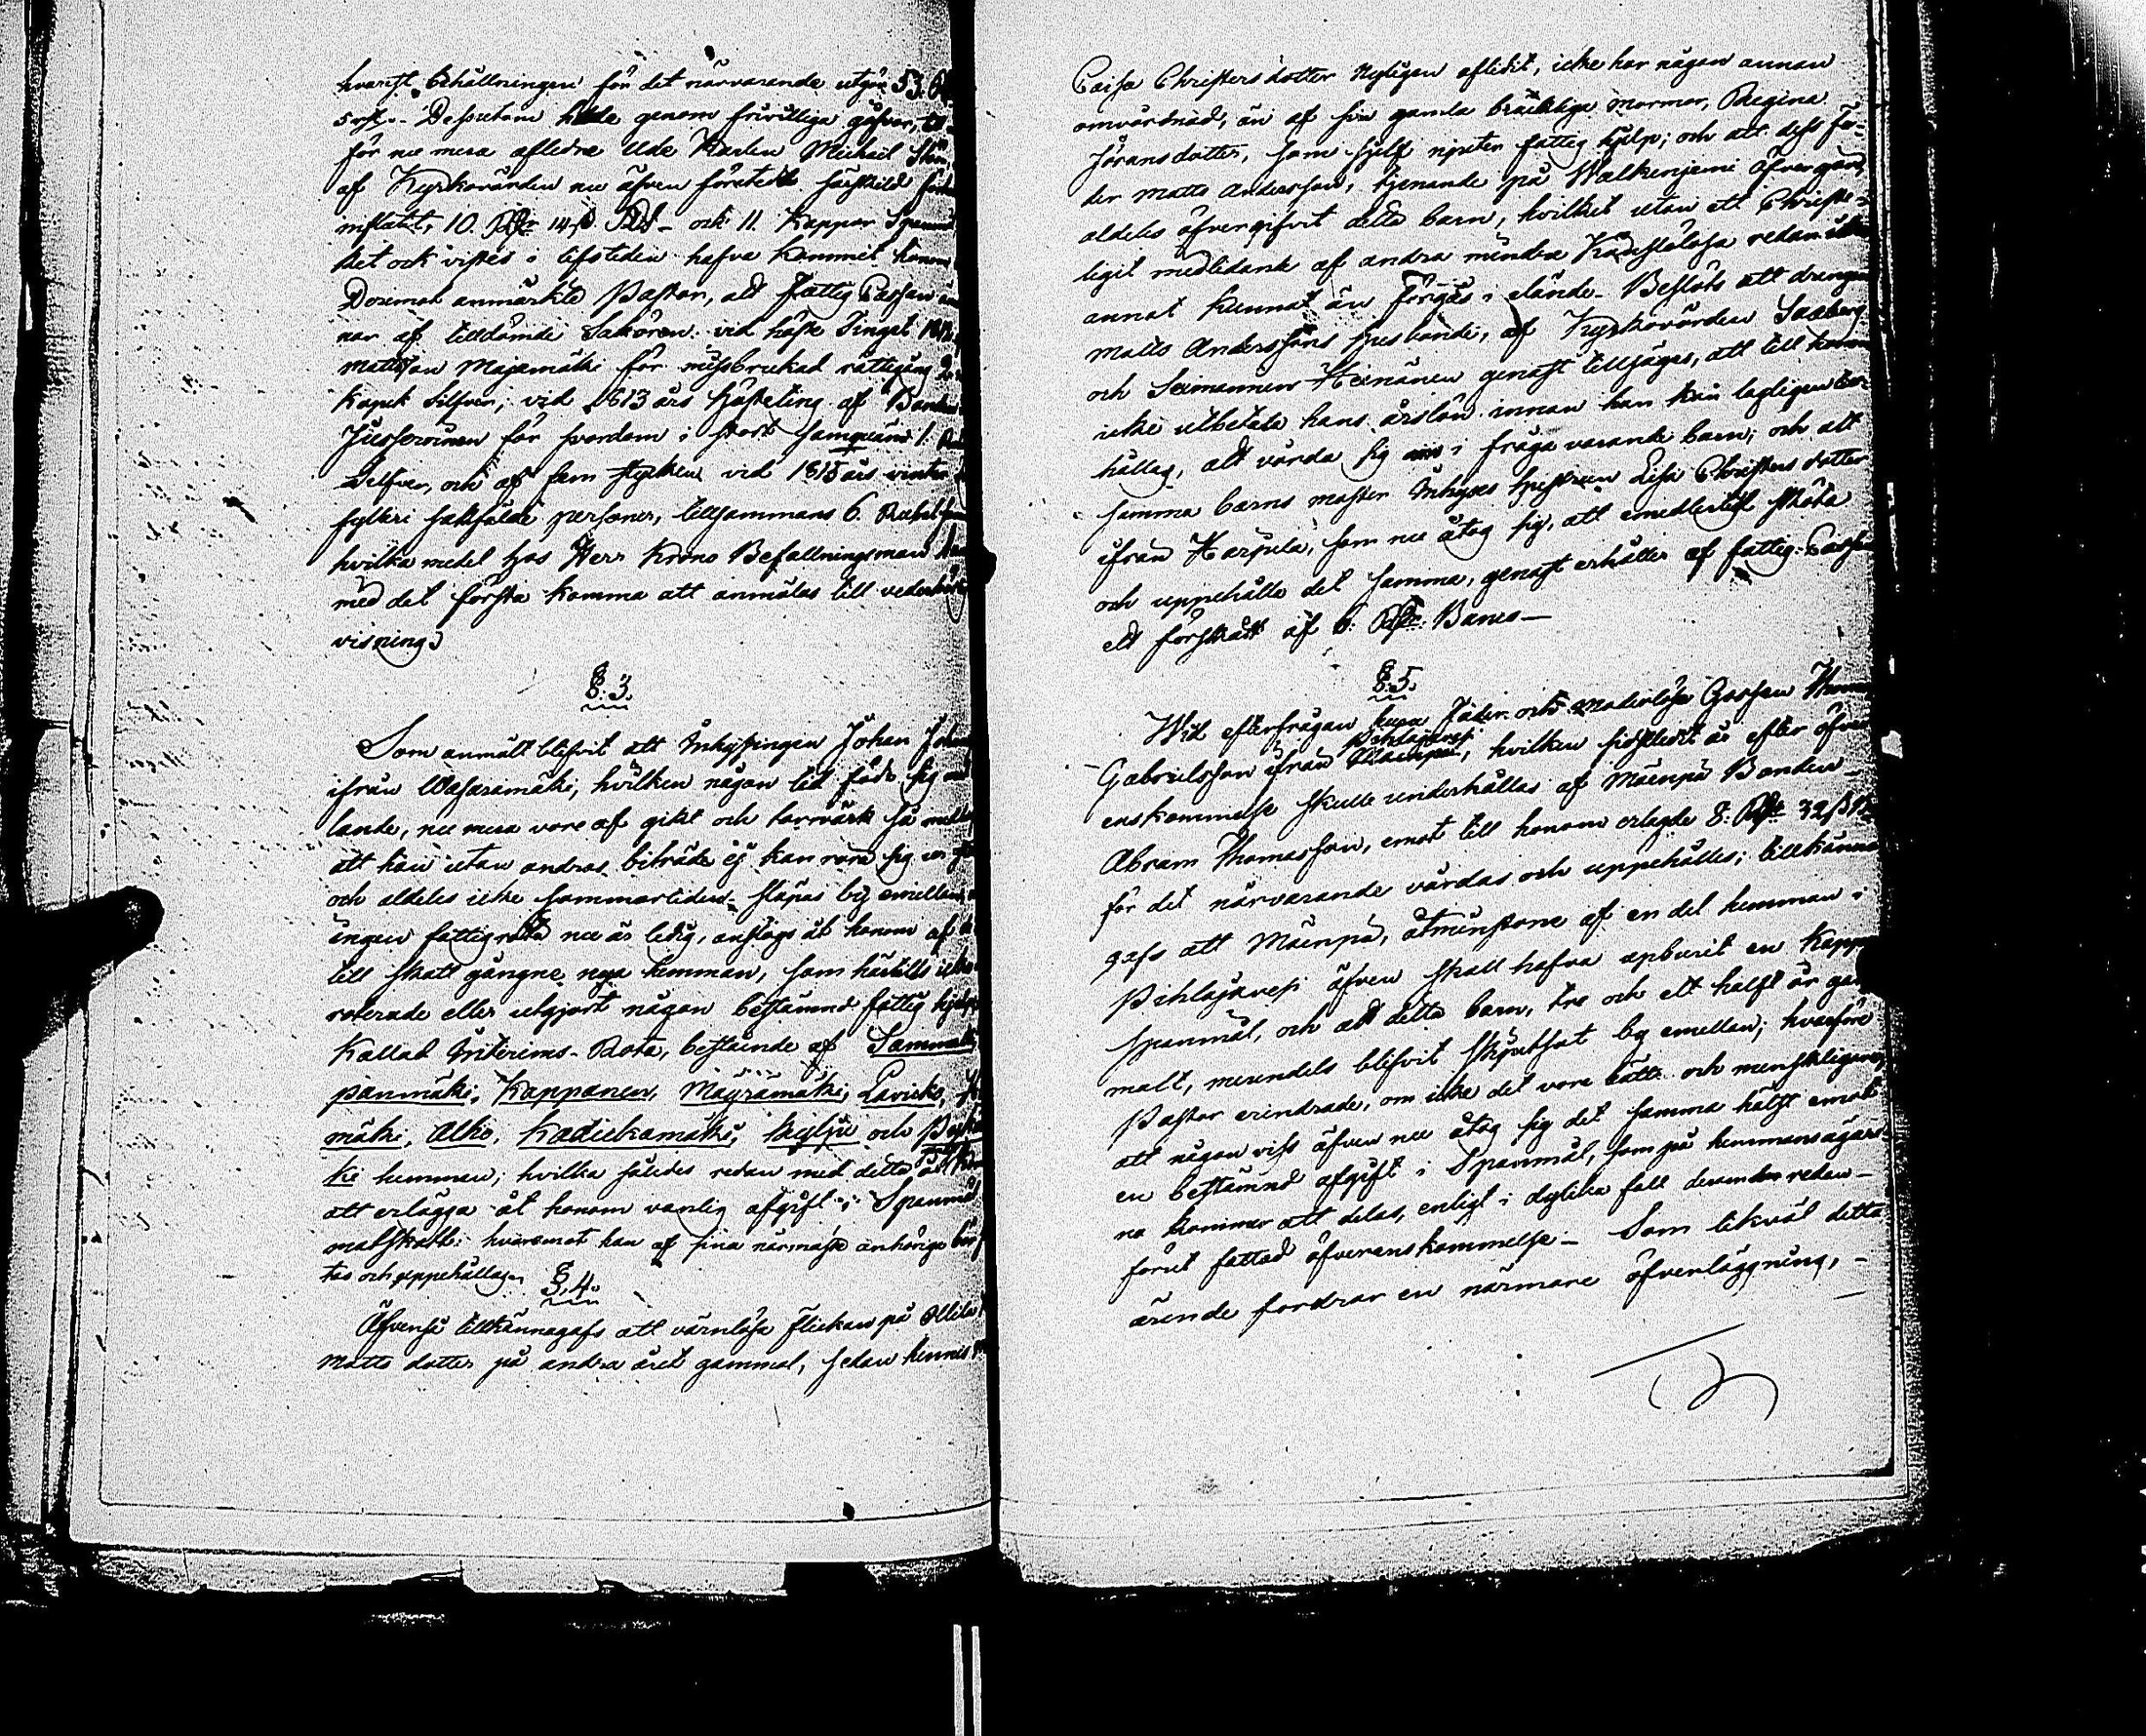 hvarest behållningen för det närvarande utgör 53.
Dessutom genom frivilliga gåfvor,
för nu mera aflidne Ude Karlen Michael
af Kyrkovärden nu äfven särskild
influtit, 10. Rdr 14 ß och 11. Kappar
det ock vistes i lifstiden hafva kommit honom
Deremot anmärkte Pastor, att Fattig Cassan
nar af tilldömde Saköron vid höste Tinget
Majamäki för missbrukad rättegång
Kopek Silfver, vid 1813 års Hösteting af Bonden
Jussoinen för svordom i stort samqväm 1.
Silfver, och af fem stycken vid 1815 års vinter
fylleri sakfälde personer, tillsammans 6. Rubel
hvilka medel hos Herr Krono Befallningsman
med det första komma att anmälas till
visning.
§. 3.
Som anmält blifvit att Inhysingen Johan
ifrån Wasaramäki, hvilken någon tid födt sig
lande, nu mera vore af gikt och torrvärk så
att han utan andras biträde ej kan röra sig
och aldeles icke sommartiden släpas by emellan
ingen fattigrota nu är ledig, anslogs åt honom af
till skatt gångne nya hemman, som härtills icke
roterade eller utgjort någon bestämd fattig hjelp
Kallad Interims-Rota, bestående af
panmäki, Kappanen, Mäyrämäki, Lavicko,
mäki, Alho, Kadiekamäki, Kylju och
ki hemman; hvilka således redan med detta år
att erlägga åt honom vanlig afgift i Spanmål
matskatt: hvaremot han af sina närmaste anhörige bör
tas och uppehållas.
§. 4.
Äfvenså tillkännagafs att värnlösa Flickan på Ollila
Matts dotter på andra året gammal, sedan hennes
Caisa Christersdotter nyligen aflidit, icke har någon annan
omvårdnad, än af sin gamla bräckliga mormor, Regina
Jöransdotter, som sjelf njuter fattig hjelp; och att dess fa-
der Matts Andersson, tjenande på Walkenjemi Öfvergård,
aldeles öfvergifvit detta barn, hvilket utan ett Christe-
ligit medlidande af andra mindre Känslolösa redan icke
annat kunnat än förgås i elände. Beslöts att drängen
Matts Anderssons husbonde, af Kyrkovärden Saxberg
och Seximannen Heinänen genast tillsäges, att till honom
icke utbetala hans årslön innan han kan lagligen
hållas, att vårda sig om i fråga varande barn; och att
samma barns moster Inhyses hustrun Lisa Christers dotter
ifrån Harjula, som nu åtog sig, att emedlertid sköta
och uppehålla det samma, genast erhåller af fattig-Cassan
ett förskott af 6. Rdr. Banco
§. 5.
Wid efterfrågan huru Fader och Moderlösa Gossen
Gabrielsson ifrån Pihlajavesi, hvilken sistledit år efter öfver
enskommelse skulle underhållas af Mäenpä Bonden
Abram Thomasson, emot till honom erlagde 8. Rdr 32 ß
för det närvarande vårdas och uppehålles; tillkänna
gafs att Mäenpä, åtminstone af en del hemman i
Pihlajavesi äfven skall hafva upburit en Kappe
spanmål, och att detta barn, tre och ett halft år gam
malt, merendels blifvit skjutsat by emellan; hvarföre
Pastor erindrade, om icke det vore bättre och menskligare,
att någon viss äfven nu åtog sig det samma hälst emot
en bestämd afgift i Spanmål, som på hemmansägare
na kommer att delas, enligt i dylika fall redan
förut fattad öfverenskommelse. Som likväl detta
ärende fordrar en närmare öfverläggning,